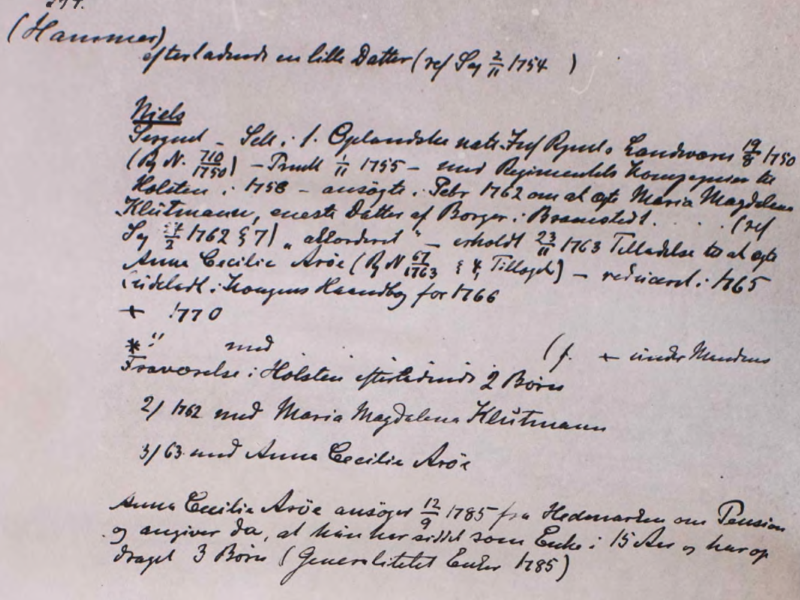 (Hammer)
efterladende en lille Datter (ref Sag 2/11 1754 )
Niels
Sergent – Sek. i 1. Oplandske natl. Inf Rgmt. Landværn 19/8 1750
(Rg N. 710/1750) – Prmlt 1/11 1755 – med Regimentets Kompagnier til
Holsten i 1758 – ansøgte i Febr 1762 om at ægte Maria Magdalena
Klütmann, eneste Datter af Borger i Bramstedt. . . . (ref
Sag /2 1762 § 7) „ akkorderet " – erholdt 23/11 1763 Tilladelse til at ægte
Anna Cecilie Arøe (Rg N 67/1763 § 4, Tillagde) – reduceret i 1765
i Kongens Haandbog for 1766
+ 1770
* 1) med (f. + under Mandens
Fraværelse i Holsten efterladende 2 Børn
2) 1762 med Maria Magdalena Klütmann
3) 63 med Anna Cecilie Arøe
Anna Cecilie Arøe ansøger 12/9 1785 fra Hedemarken om Pension
og angiver da, at hun har siddet som Enke i 15 Aar og har op
draget 3 Børn (Generalitetet Enker 1785)